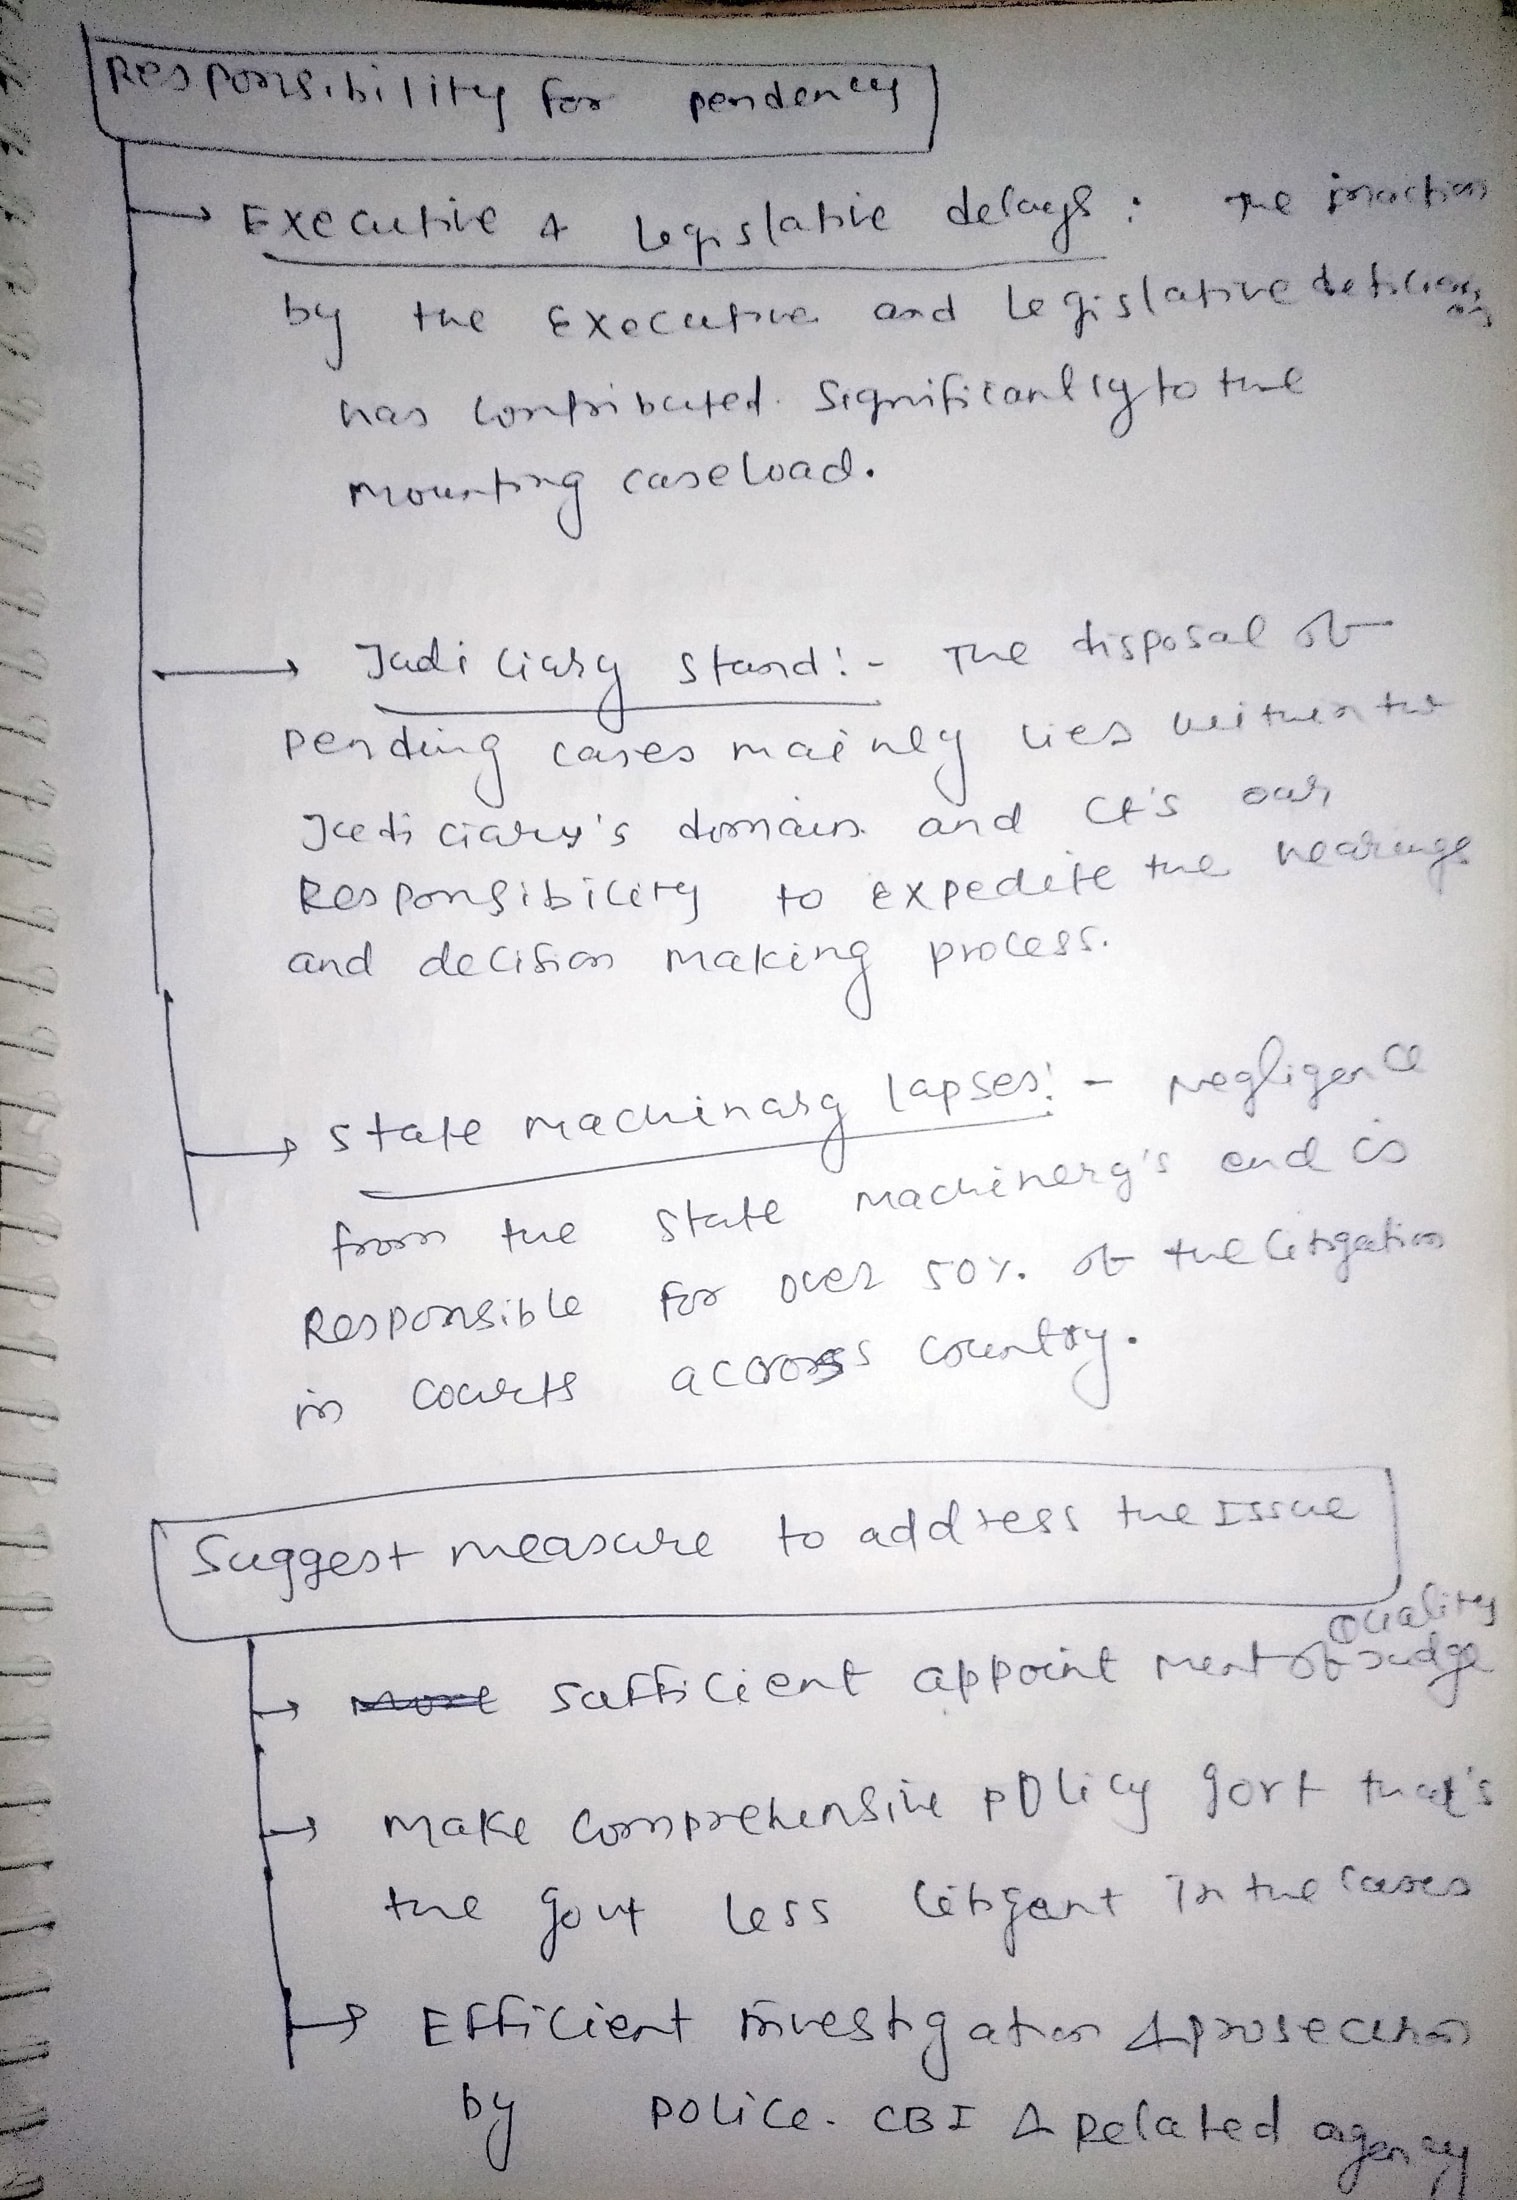 Responsibility for pendency
Executive & Legislative delays : The inaction
by the Executive and Legislative deficiency
has contributed significantly to the
mounting caseload.
Judiciary stand :- The disposal of
pending cases mainly lies within the
Judiciary's domain and it's our
Responsibility to expedite the hearings
and decision making process.
State machinary lapses :- Negligence
from the state machinery's end is
Responsible for over 50% of the litigation
in courts across country.
Suggest measure to address the Issue
Quality
sufficient appointment of Judge
Make comprehensive policy govt that's
the govt less litigant in the cases
Efficient investigation & prosecution
by police. CBI & Related agency